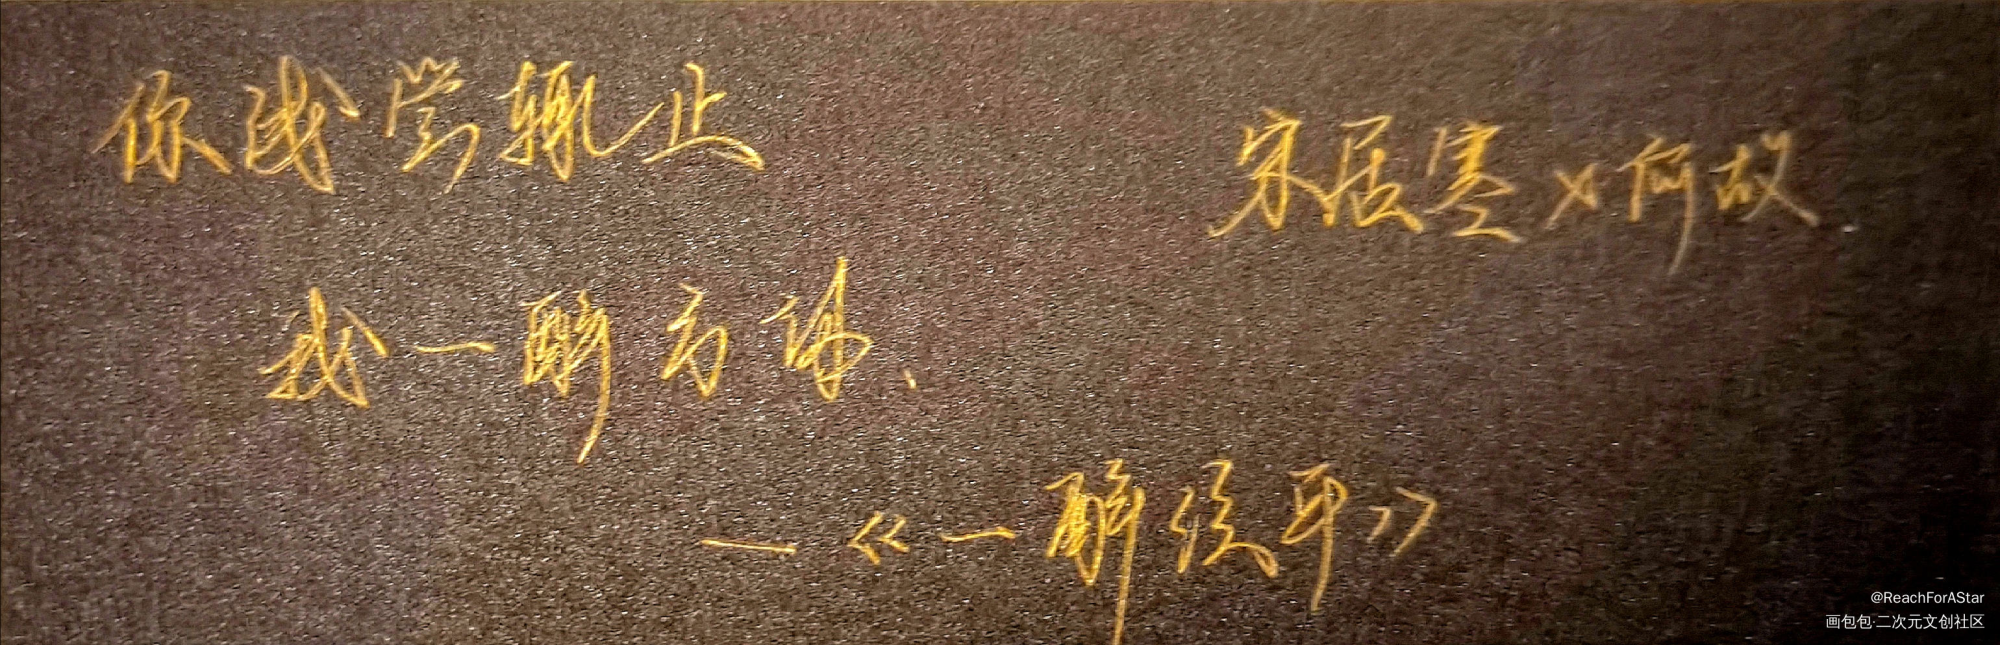 你浅尝辄止
宋居寒×何故
我一醉方休.
—《一醉经年》
@ReachForAStar
画包包·二次元文创社区